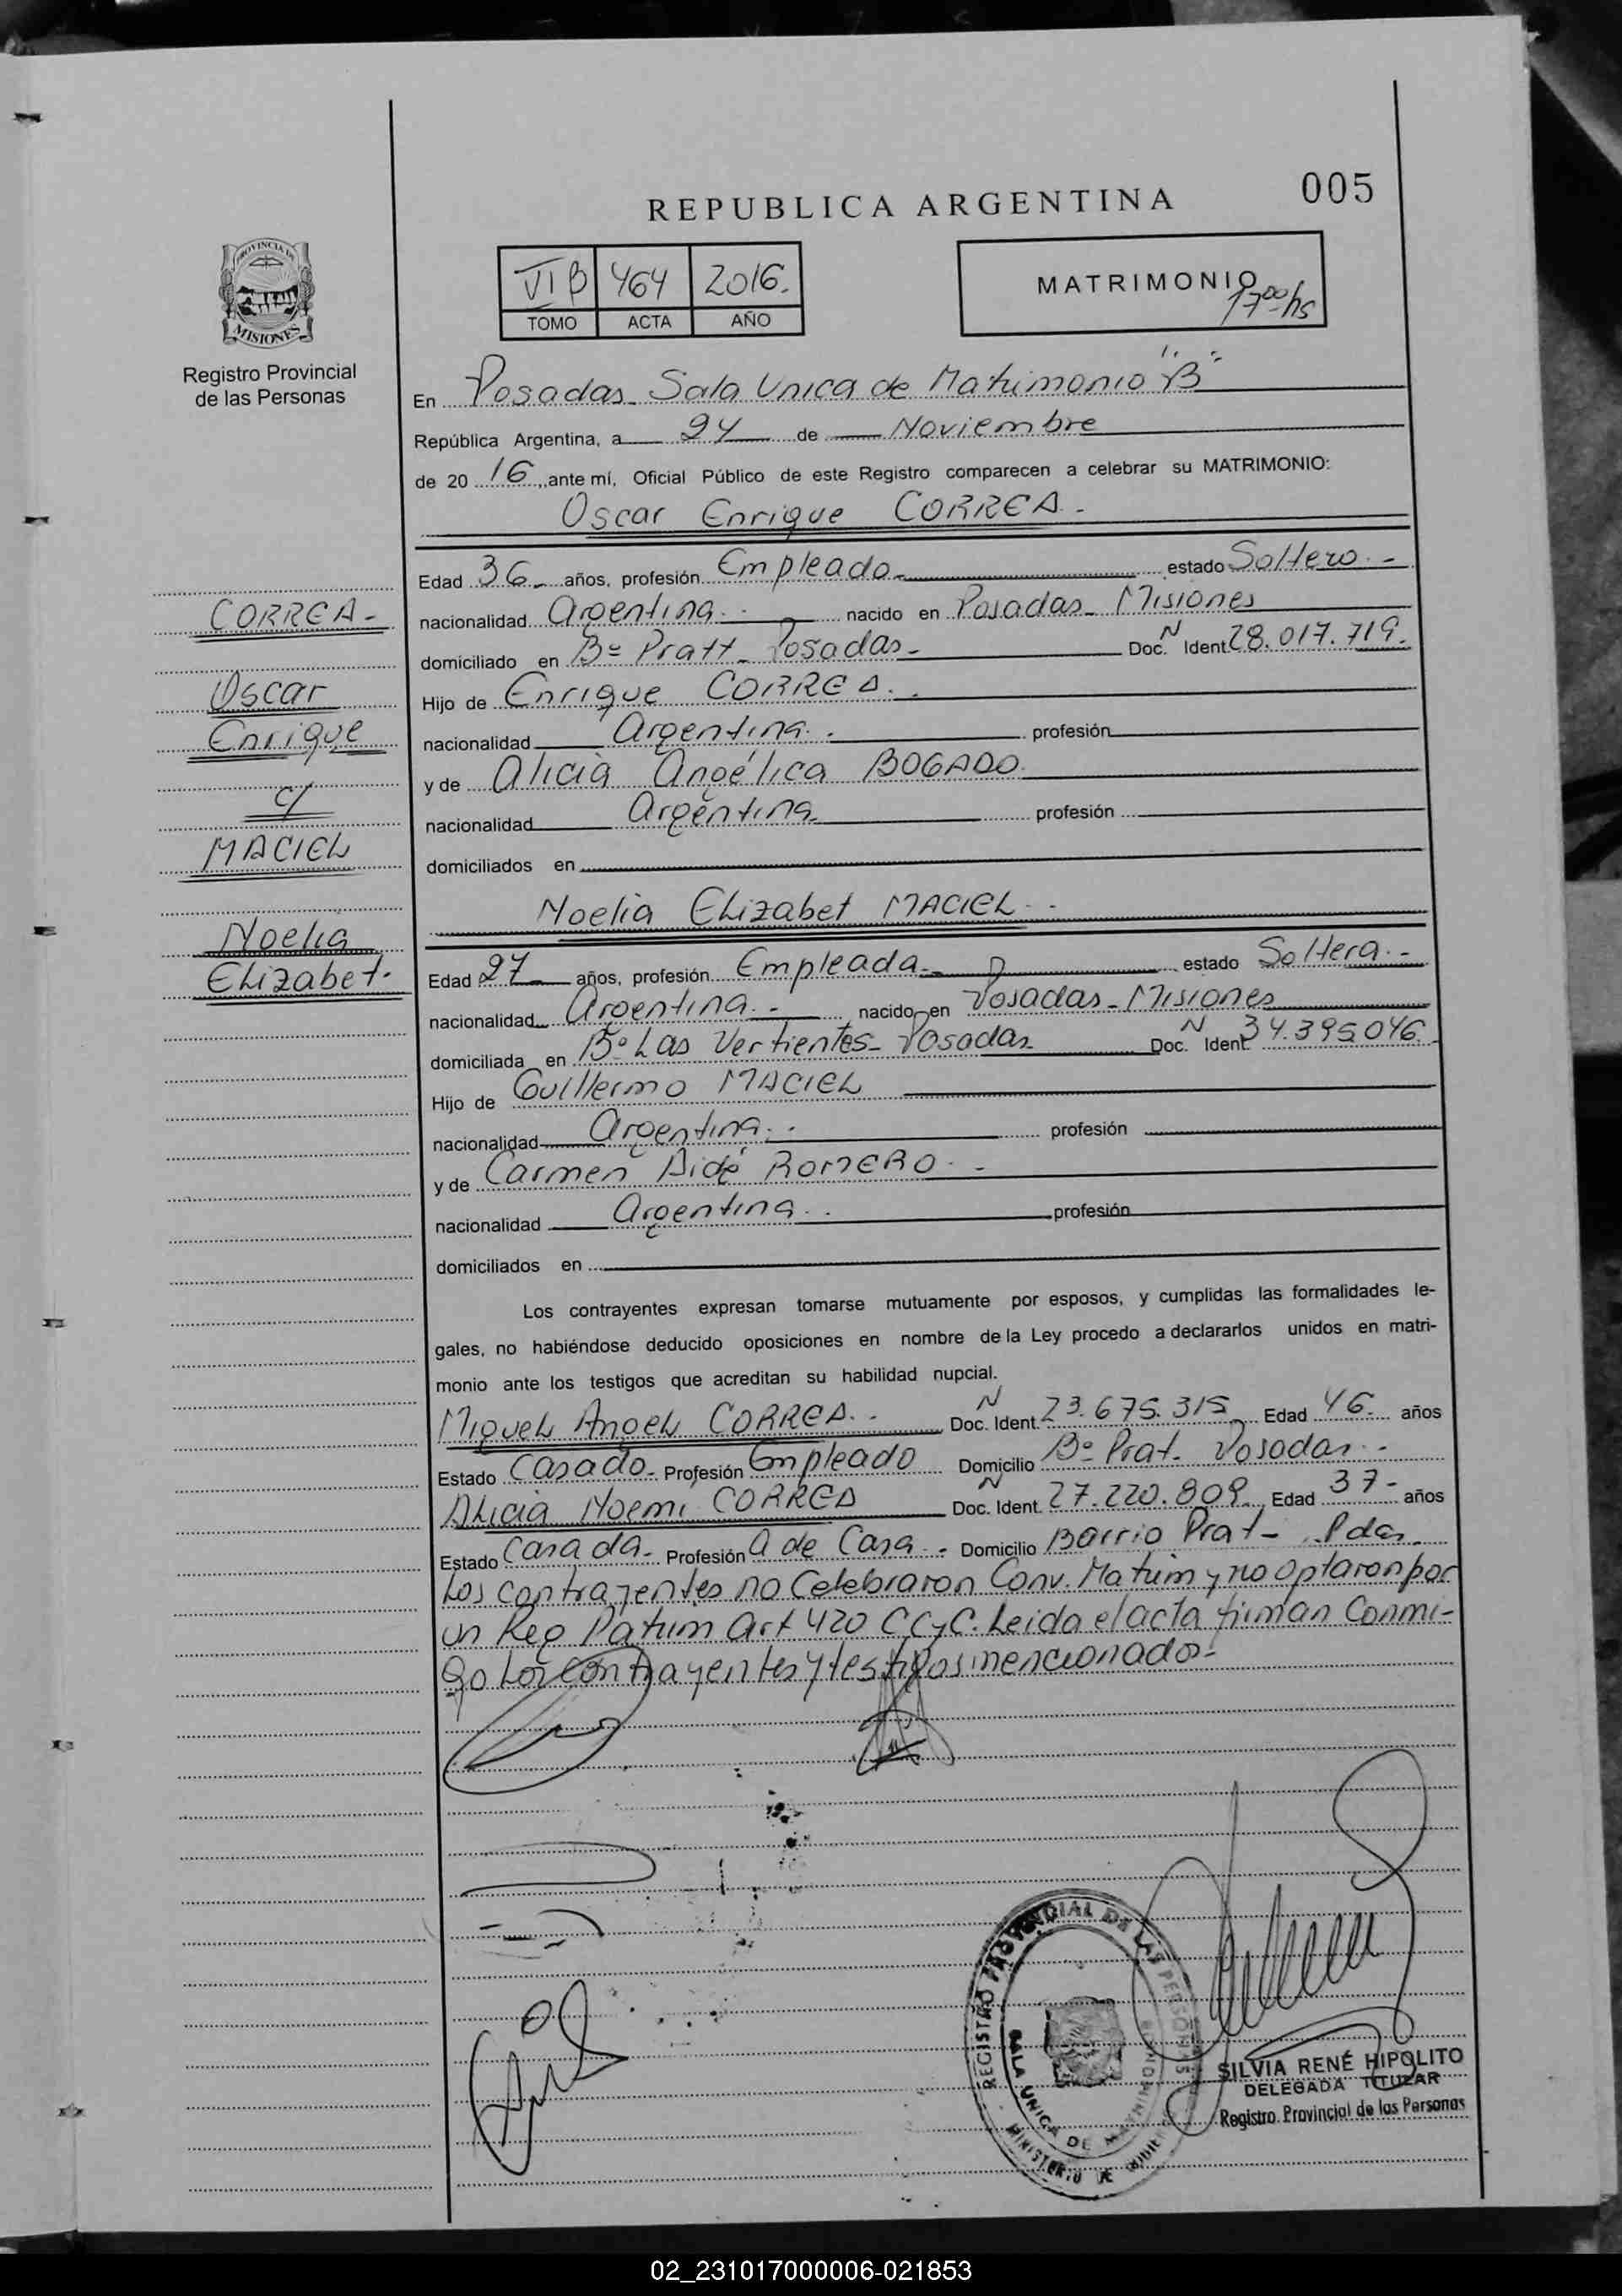 005
REPUBLICA ARGENTINA
VI B 464 2016.
TOMO ACTA AÑO
MATRIMONIO
17⁰⁰hs
PROVINCIA DE
MISIONES
Registro Provincial
de las Personas
En Posadas Sala Unica de Matrimonio "B"
República Argentina, a 24 de Noviembre
de 20 16, ante mí, Oficial Público de este Registro comparecen a celebrar su MATRIMONIO:
Oscar Enrique CORREA.-
Edad 36 años, profesión Empleado estado Soltero.-
nacionalidad Argentina.- nacido en Posadas Misiones
domiciliado en Bº Pratt Posadas- Doc. N Ident 28.017.719.
Hijo de Enrique CORREA.
nacionalidad Argentina. profesión
y de Alicia Angélica BOGADO
nacionalidad Argentina profesión
domiciliados en
CORREA-
Oscar
Enrique
c/
MACIEL
Noelia
Elizabet-
Noelia Elizabet MACIEL.-
Edad 27 años, profesión Empleada estado Soltera.-
nacionalidad Argentina.- nacido en Posadas-Misiones
domiciliada en Bº Las Vertientes-Posadas Doc. N Ident 34.395.046.
Hijo de Guillermo MACIEL
nacionalidad Argentina.. profesión
y de Carmen Aidé ROMERO.-
nacionalidad Argentina.. profesión
domiciliados en
Los contrayentes expresan tomarse mutuamente por esposos, y cumplidas las formalidades le-
gales, no habiéndose deducido oposiciones en nombre de la Ley procedo a declararlos unidos en matri-
monio ante los testigos que acreditan su habilidad nupcial.
Miguel Angel CORREA.- Doc. N Ident. 23.675.315 Edad 46. años
Estado Casado- Profesión Empleado Domicilio Bº Prat- Posadas.-
Alicia Noemi CORREA Doc. N Ident. 27.220.809. Edad 37- años
Estado Casada- Profesión A de Casa.- Domicilio Barrio Prat- Pdas.
Los contrayentes no Celebraron Conv. Matrim y no Optaron por
un Reg Patrim Art 420 CCyC. Leida el acta firman Conmi-
go Los Contrayentes y testigos mencionados-
REGISTRO PROVINCIAL DE LAS PERSONAS
SALA UNICA DE MATRIMONIO
MINISTERIO DE
SILVIA RENÉ HIPOLITO
DELEGADA TITULAR
Registro Provincial de las Personas
02_231017000006-021853